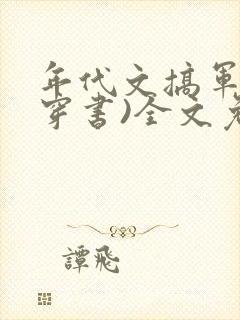 年代文搞軍
穿書)全文免
譚飛